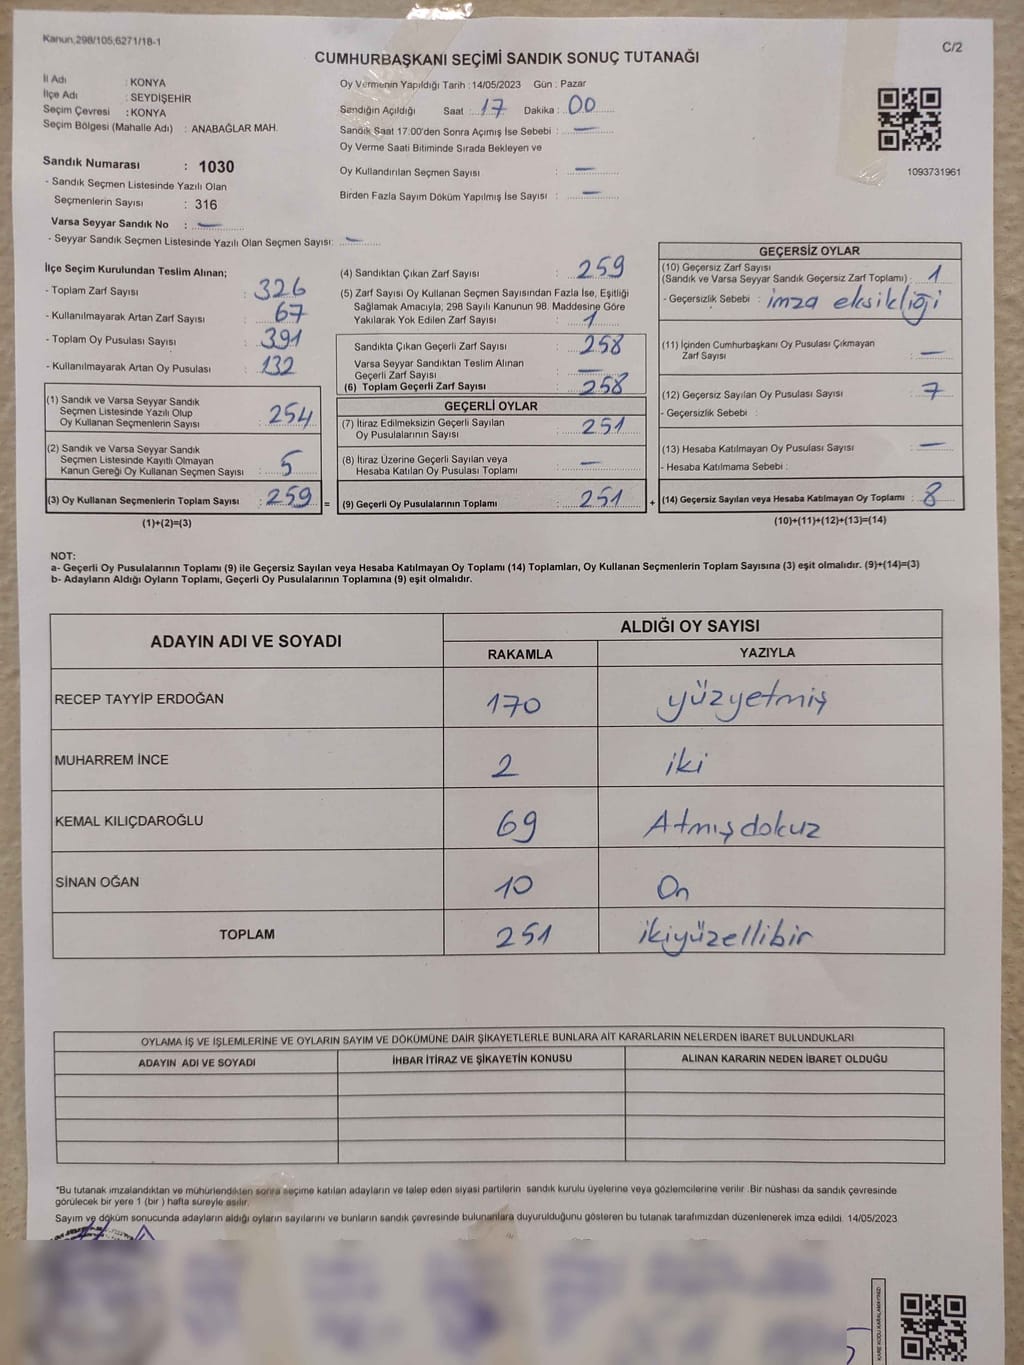 Kanun,298/105,6271/18-1
C/2
CUMHURBAŞKANI SEÇİMİ SANDIK SONUÇ TUTANAĞI
İl Adı : KONYA
İlçe Adı : SEYDİŞEHİR
Seçim Çevresi : KONYA
Seçim Bölgesi (Mahalle Adı) : ANABAĞLAR MAH.
Sandık Numarası : 1030
- Sandık Seçmen Listesinde Yazılı Olan
Seçmenlerin Sayısı : 316
Varsa Seyyar Sandık No : —
- Seyyar Sandık Seçmen Listesinde Yazılı Olan Seçmen Sayısı: —
Oy Vermenin Yapıldığı Tarih : 14/05/2023 Gün : Pazar
Sandığın Açıldığı Saat : 17 Dakika : 00
Sandık Saat 17.00'den Sonra Açımış İse Sebebi : —
Oy Verme Saati Bitiminde Sırada Bekleyen ve
Oy Kullandırılan Seçmen Sayısı : —
Birden Fazla Sayım Döküm Yapılmış İse Sayısı : —
1093731961
İlçe Seçim Kurulundan Teslim Alınan;
- Toplam Zarf Sayısı : 326
- Kullanılmayarak Artan Zarf Sayısı : 67
- Toplam Oy Pusulası Sayısı : 391
- Kullanılmayarak Artan Oy Pusulası : 132
(1) Sandık ve Varsa Seyyar Sandık
Seçmen Listesinde Yazılı Olup
Oy Kullanan Seçmenlerin Sayısı : 254
(2) Sandık ve Varsa Seyyar Sandık
Seçmen Listesinde Kayıtlı Olmayan
Kanun Gereği Oy Kullanan Seçmen Sayısı : 5
(3) Oy Kullanan Seçmenlerin Toplam Sayısı : 259 =
(1)+(2)=(3)
(4) Sandıktan Çıkan Zarf Sayısı : 259
(5) Zarf Sayısı Oy Kullanan Seçmen Sayısından Fazla İse, Eşitliği
Sağlamak Amacıyla; 298 Sayılı Kanunun 98. Maddesine Göre
Yakılarak Yok Edilen Zarf Sayısı : 1
Sandıkta Çıkan Geçerli Zarf Sayısı : 258
Varsa Seyyar Sandıktan Teslim Alınan
Geçerli Zarf Sayısı : —
(6) Toplam Geçerli Zarf Sayısı : 258
GEÇERLİ OYLAR
(7) İtiraz Edilmeksizin Geçerli Sayılan
Oy Pusulalarının Sayısı : 251
(8) İtiraz Üzerine Geçerli Sayılan veya
Hesaba Katılan Oy Pusulası Toplamı : —
(9) Geçerli Oy Pusulalarının Toplamı : 251 +
GEÇERSİZ OYLAR
(10) Geçersiz Zarf Sayısı
(Sandık ve Varsa Seyyar Sandık Geçersiz Zarf Toplamı) : 1
- Geçersizlik Sebebi : imza eksikliği
(11) İçinden Cumhurbaşkanı Oy Pusulası Çıkmayan
Zarf Sayısı : —
(12) Geçersiz Sayılan Oy Pusulası Sayısı : 7
- Geçersizlik Sebebi :
(13) Hesaba Katılmayan Oy Pusulası Sayısı : —
- Hesaba Katılmama Sebebi :
(14) Geçersiz Sayılan veya Hesaba Katılmayan Oy Toplamı : 8
(10)+(11)+(12)+(13)=(14)
NOT:
a- Geçerli Oy Pusulalarının Toplamı (9) ile Geçersiz Sayılan veya Hesaba Katılmayan Oy Toplamı (14) Toplamları, Oy Kullanan Seçmenlerin Toplam Sayısına (3) eşit olmalıdır. (9)+(14)=(3)
b- Adayların Aldığı Oyların Toplamı, Geçerli Oy Pusulalarının Toplamına (9) eşit olmalıdır.
ADAYIN ADI VE SOYADI
ALDIĞI OY SAYISI
RAKAMLA YAZIYLA
RECEP TAYYİP ERDOĞAN 170 yüzyetmiş
MUHARREM İNCE 2 iki
KEMAL KILIÇDAROĞLU 69 Atmışdokuz
SİNAN OĞAN 10 On
TOPLAM 251 ikiyüzellibir
OYLAMA İŞ VE İŞLEMLERİNE VE OYLARIN SAYIM VE DÖKÜMÜNE DAİR ŞİKAYETLERLE BUNLARA AİT KARARLARIN NELERDEN İBARET BULUNDUKLARI
ADAYIN ADI VE SOYADI İHBAR İTİRAZ VE ŞİKAYETİN KONUSU ALINAN KARARIN NEDEN İBARET OLDUĞU
*Bu tutanak imzalandıktan ve mühürlendikten sonra seçime katılan adayların ve talep eden siyasi partilerin sandık kurulu üyelerine veya gözlemcilerine verilir .Bir nüshası da sandık çevresinde
görülecek bir yere 1 (bir ) hafta süreyle asılır.
Sayım ve döküm sonucunda adayların aldığı oyların sayılarını ve bunların sandık çevresinde bulunanlara duyurulduğunu gösteren bu tutanak tarafımızdan düzenlenerek imza edildi. 14/05/2023
KARE KODU KARALAMAYINIZ!